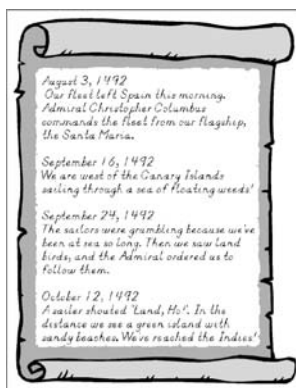 August 3, 1492
Our fleet left Spain this morning.
Admiral Christopher Columbus
commands the fleet from our flagship,
the Santa Maria.
September 16, 1492
We are west of the Canary Islands
sailing through a sea of floating weeds!
September 24, 1492
The sailors were grumbling because we've
been at sea so long. Then we saw land
birds, and the Admiral ordered us to
follow them.
October 12, 1492
A sailor shouted "Land, Ho!". In the
distance we see a green island with
sandy beaches. We've reached the Indies!